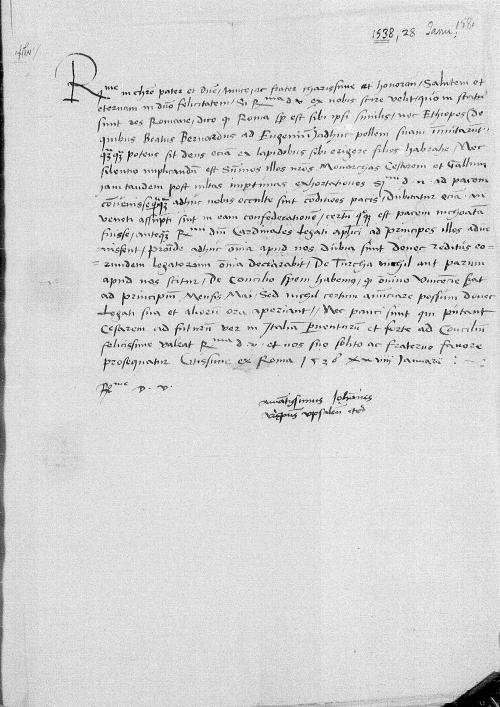 1538, 28 Janu: 158
R
me in chro pater et dne, amice ac frater charissime et honoran, Salutem et
eternam in dno felicitatem, Si R ma d v ex nobis scire velit quo in statu
sint res Romane, dico q Roma sp est sibi ipsi similis, nec Ethiopes de
quibus Beatus Bernardus ad Eugeniu adhuc pellem suam imutarut,
potens sit deus ex lapidobus sibi erigere filios habrahe Nec
silentio implicandu est illos nros Monarchas Cesarem et Gallum
iam tandem post mltas imptimas exhortationes S mi d n ad pacem
adhuc nobis occulte sint coditioes pacis, dubitatur
veneti assupti sint in eam confederatione, certu est pacem inchoata
fuisse, anteq R mi dni Cardinales Legati aplici ad principes illos adve
nissent, Proide adhuc omia apud nos dubia sint donec reditus eo-
rundem legatorum omia declarabit, De Turcha nichil aut parum
apud nos scitur, De Concilio spem habemus, q omino Vincencie fiat
ad principiu Mensis Maii, Sed nichil certum annciare possum donec
Legati sua et alioru ora aperiant, Nec pauci sunt qui putant
Cesarem ad futuru ver in Italia perventuru et forte ad Conciliu
felicissime valeat R ma d v et nos suo solito ac fraterno favore
prosequatur Citissime ex Roma 1538 xxviii Januarii
R me D. V.
amatissimus Johannes
archiepus upsalen